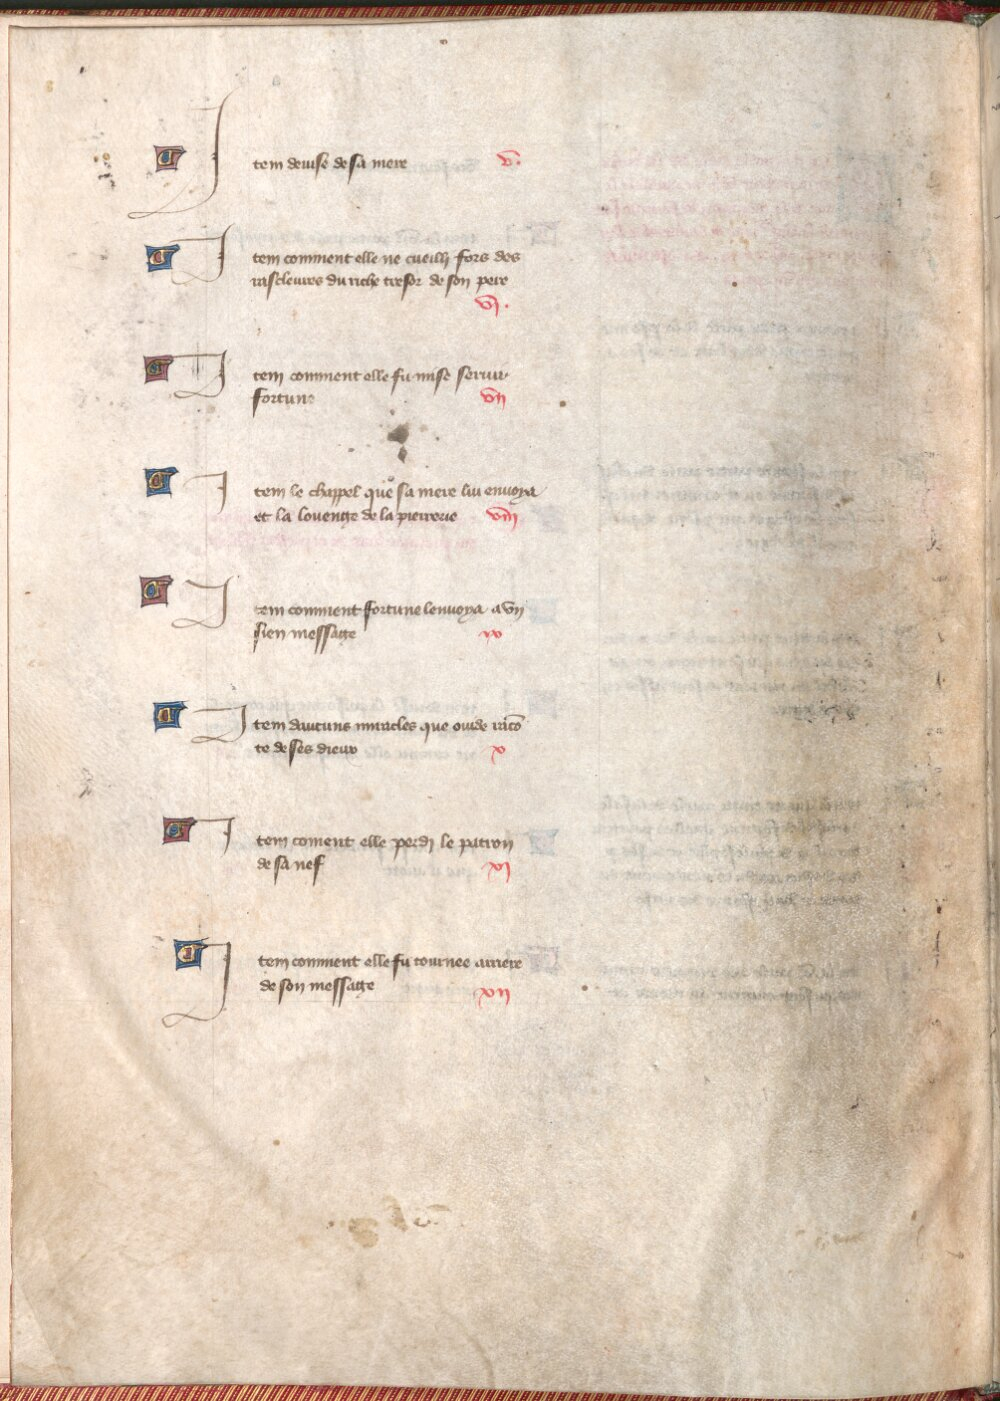 Item deuise de sa mere v.
Item comment elle ne cueilli fors des
rascleures du riche tresor de son pere
vj.
Item comment elle fu mise seruir
fortune vij
Item le chappel que sa mere lui enuoya
et la louenge de la pierrerie viij
Item comment fortune lenuoya a vn
sien message ix
Item daucuns miracles que ouide raco͂
te de ses dieux x
Item coment elle perdj le patron
de sa nef xj
Item comment elle fu tournee arriere
de son message xij